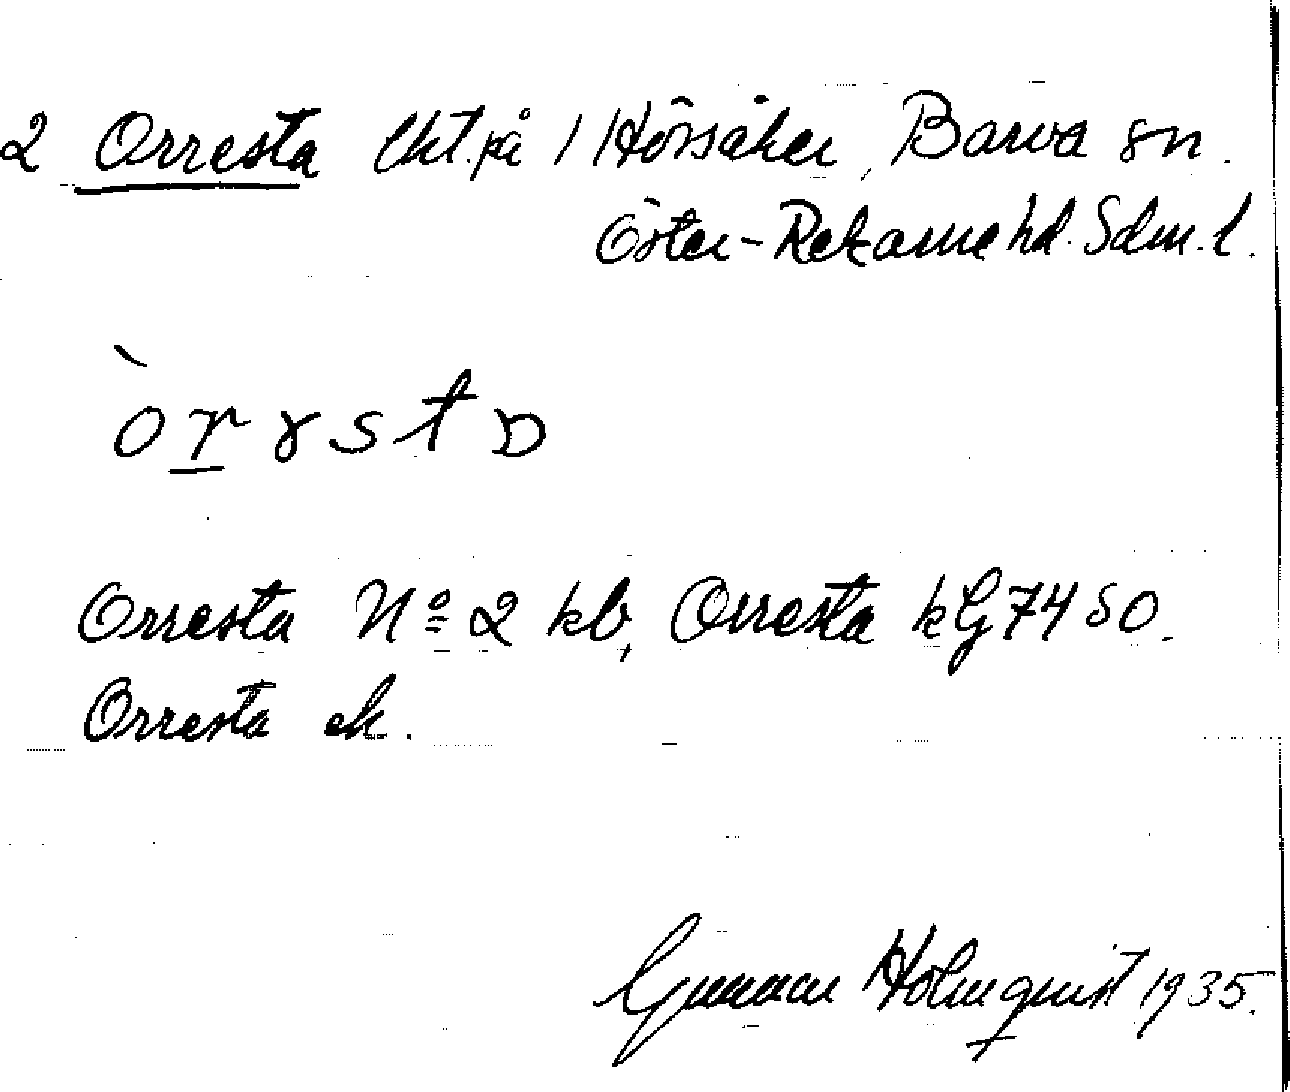 2 Orresta lht. på 1 Hörsåker, Barva sn.
Öster-Rekarne hd. Sdm. l.
òrɤstɒ
Orresta Nº 2 kb, Orresta kG 74 SO.
Orresta ek.
Gunnar Holmquist 1935.